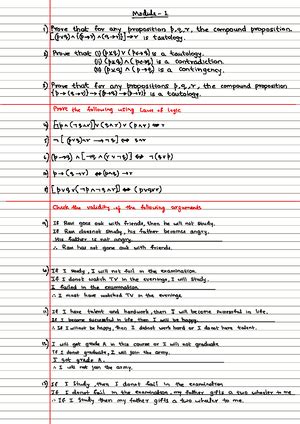 Module - 1
1) Prove that for any proposition p,q,r, the compound proposition
[(p∨q)∧(p→r)∧(q→r)]→r is tautology.
2) Prove that (i) (p⊻q)∨(p↔q) is a tautology.
(ii) (p⊻q)∧(p↔q) is a contradiction.
(iii) (p⊻q)∧(p→q) is a contingency.
3) Prove that for any propositions p,q,r, the compound proposition
{p→(q→r)}→{(p→q)→(p→r)} is a tautology.
Prove the following using Laws of logic
4) [¬p∧(¬q∧r)]∨(q∧r)∨(p∧r)⇔r
5)
6) (p→q)∧[¬q∧(r∨¬q)]⇔¬(q∨p)
7) p→(q→r)⇔(p∧q)→r
8) [p∨q∨(¬p∧¬q∧r)]⇔(p∨q∨r)
Check the validity of the following arguments
9) If Ram goes out with friends, then he will not study.
If Ram doesnot study, his father becomes angry.
His father is not angry.
∴ Ram has not gone out with friends.
10) If I study, I will not fail in the examination.
If I donot watch TV in the evenings, I will study.
I failed in the examination
∴ I must have watched TV in the evenings.
11) If I have talent and hardwork, then I will become successful in life.
If I become successful in life, then I will be happy.
∴ If I will not be happy, then I didnot work hard or I donot have talent.
12) I will get grade A in this course or I will not graduate
If I donot graduate, I will join the army.
I got grade A.
∴ I will not join the army.
13) If I study then I donot fail in the examination
If I donot fail in the examination, my father gifts a two wheeler to me
∴ If I study then my father gifts a two wheeler to me.